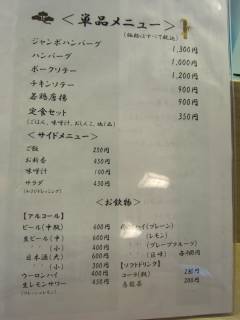 <単品メニュー>
(価格はすべて税込)
ジャンボハンバーグ 1,300円
ハンバーグ 1,000円
ポークソテー 1,200円
チキンソテー 900円
若鶏唐揚 900円
定食セット 350円
(ごはん、味噌汁、おしんこ、
<サイドメニュー>
ご飯 250円
お新香 450円
味噌汁 100円
サラダ 450円
<お飲物>
【アルコール】
ビール(中瓶) 600円
生ビール(中) 600円
〃 (小) 400円
日本酒(大) 600円
〃 (小) 300円
ウーロンハイ 400円
生レモンサワー 450円
ハイ(プレーン)
(レモン)
(グレープフルーツ)
【ソフトドリンク】
コーラ(瓶)
烏龍茶 200円